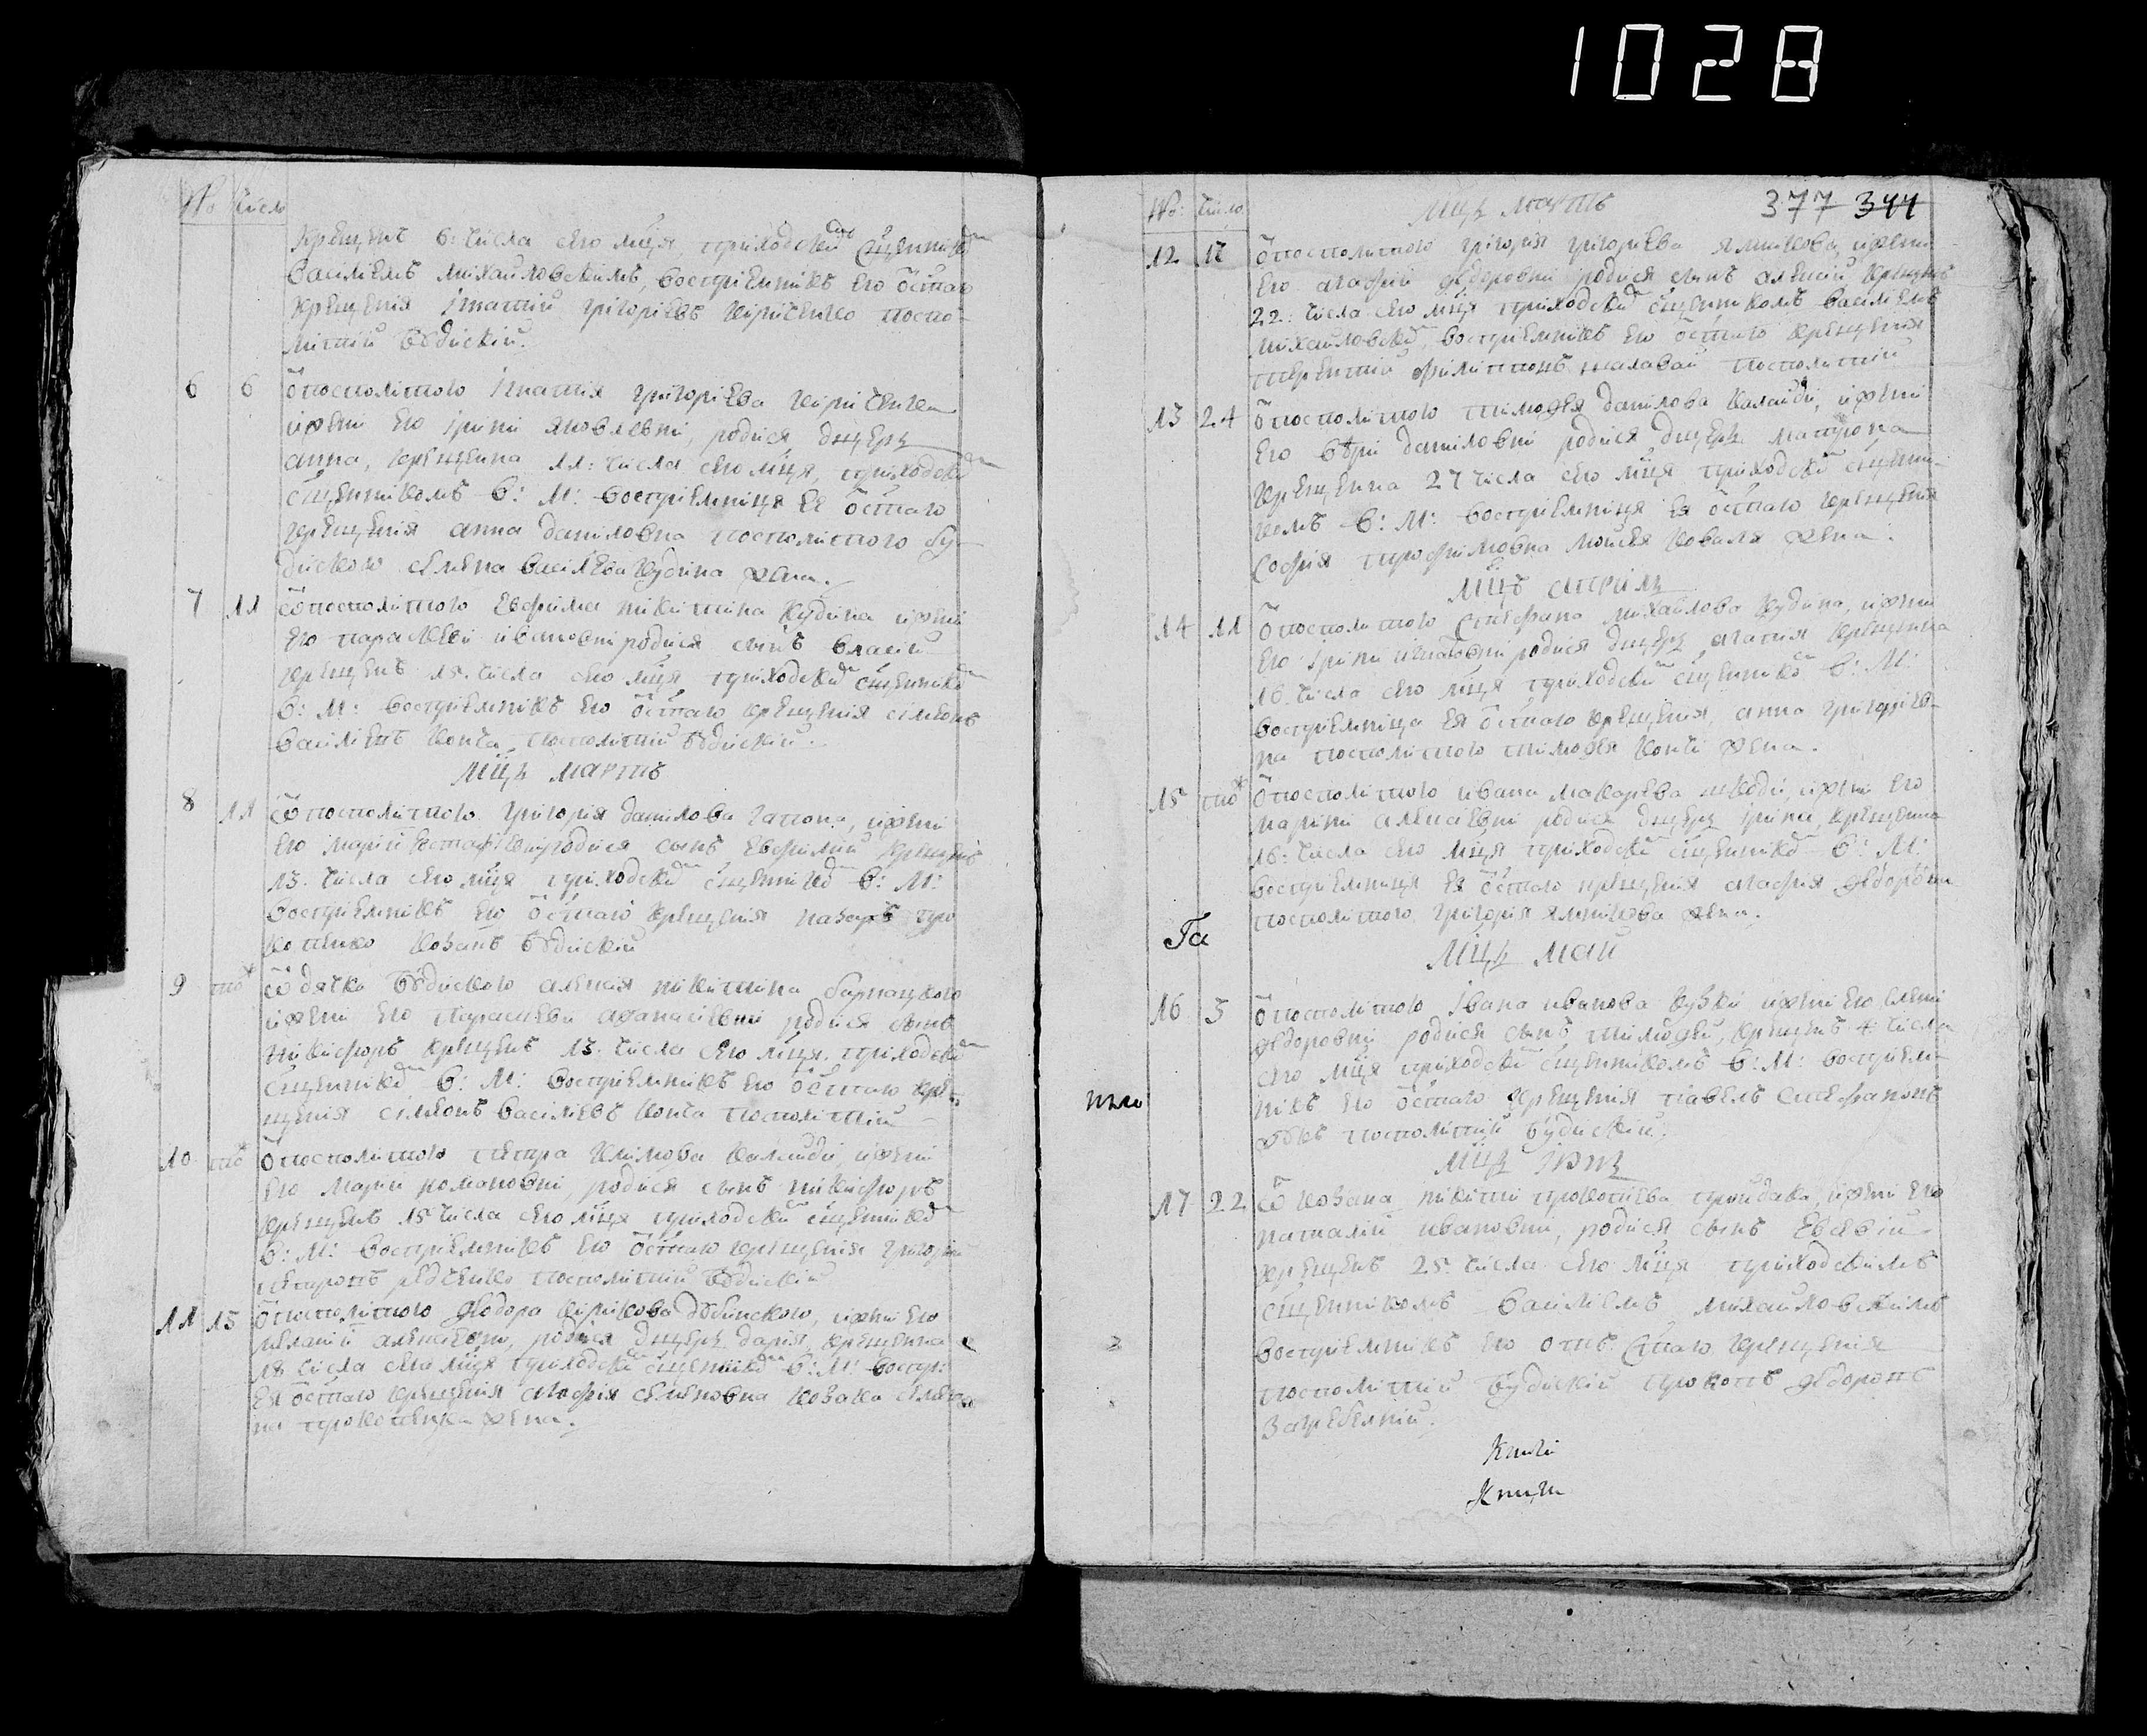 1028
№ Число
крещенъ 6: числа сего мця, приходскимъ сщенникомъ
василиемъ михайловскимъ, восприемникъ его от стаго
крещения игнатий григориевъ кириченко поспо-
литий будиский.
6 6 от посполитого игнатия григориева кириченка
и жени его ирини яковлевни, родися дщерь
анна, крещенна 11: числа сего мця, приходским
сщенникомъ В: М: восприемница ея от стаго
крещения анна даниловна посполитого бу-
диского семена василиева кудина жена.
7 11 от посполитого евфима никитина кудина и жени
его параскеви ивановни родися синъ власий
крещенъ 15. числа сего мця приходским сщенником
В: М: восприемникъ его от стаго крещения симеонъ
василиевъ конча, посполитий будиский.
мцъ мартъ
8 11 от посполитого григория данилова гапона, и жени
его марии родися синъ евфимий крещенъ
13. числа сего мця приходским сщенником В: М:
восприемникъ его от стаго крещения назаръ про
копенко козакъ будиский
9 тож от дячка будиского алексия никитина
и жени его параскеви афанасиевни родися синъ
никифоръ крещенъ 13. числа сего мця. приходским
сщенником В: М: восприемникъ его от стаго кре-
щения симеонъ василиевъ конча посполитий
10 тож от посполитого петра климова каланди, и жени
его марии романовни, родися синъ никифоръ
крещенъ 15 числа сего мця приходским сщенником
В: М: восприемникъ его от стаго крещения григорий
петровъ редченко посполитий будиский
11 15 от посполитого феодора кирикова дубинского, и жени его
мелании алексиевни, родися дщерь дария, крещенна
18 числа сего мця приходским сщенником В: М: воспр:
ея от стаго крещения агафия семеновна козака семе
на прокопенка жена.
№: Число
мцъ мартъ
377 344
12 17 от посполитого григория григориева ямкова, и жени
его агафии федоровни родися синъ алексий крещенъ
22: числа сего мця приходским сщенникомъ василиемъ
михайловским, восприемникъ его от стаго крещения
терентий филиповъ посполитий
13 24 от посполитого тимофея данилова каланди, и жени
его даниловни родися дщерь матрона
крещенна 27 числа сего мця приходским сщенни-
комъ В: М: восприемница ея от стаго крещения
софия трофимовна мойсея коваля жена.
мцъ априль
14 11 от посполитого стефана михайлова кудина, и жени
его ирини игнатовни родися дщерь агапия крещенна
16 числа сего мця приходским сщенником В: М:
восприемница ея от стаго крещения, анна григориев-
на посполитого тимофея кончи жена.
15 тож от посполитого ивана макарева шкоди, и жени его
марини алексиевни родися дщерь ирина, крещенна
16: числа сего мця приходским сщенником В: М:
восприемница ея от стаго крещения агафия федоровна
посполитого григория ямкова жена.
Га
мцъ май
16 3 от посполитого ивана иванова кузки и жени его елени
федоровни родися синъ тимофей, крещенъ 4 числа
сего мця приходским сщенникомъ В: М: восприем-
никъ его от стаго крещения павелъ стефановъ
посполитий будиский.
мцъ июнь
17 22 от козака никити прокопиева приндака, и жени его
наталии ивановни, родися синъ евсевий
крещенъ 25. числа сего мця приходскимъ
сщенникомъ василиемъ михайловскимъ
восприемникъ его отъ стаго крещения
посполитий будиский прокопъ федоровъ
загребелний.
Книги
Книги